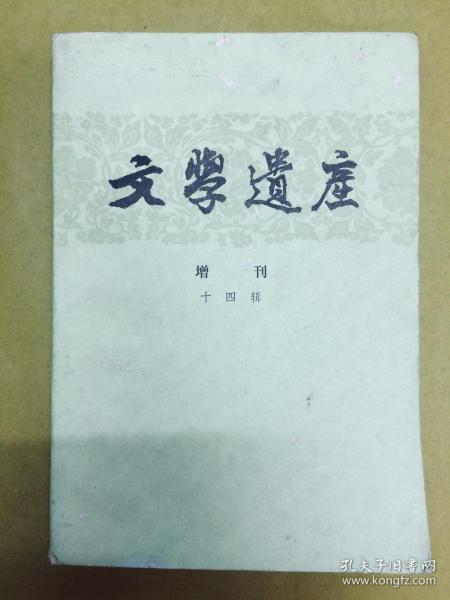 文學遺産
增刊
十四辑
孔夫子旧书网
www.kongfz.com